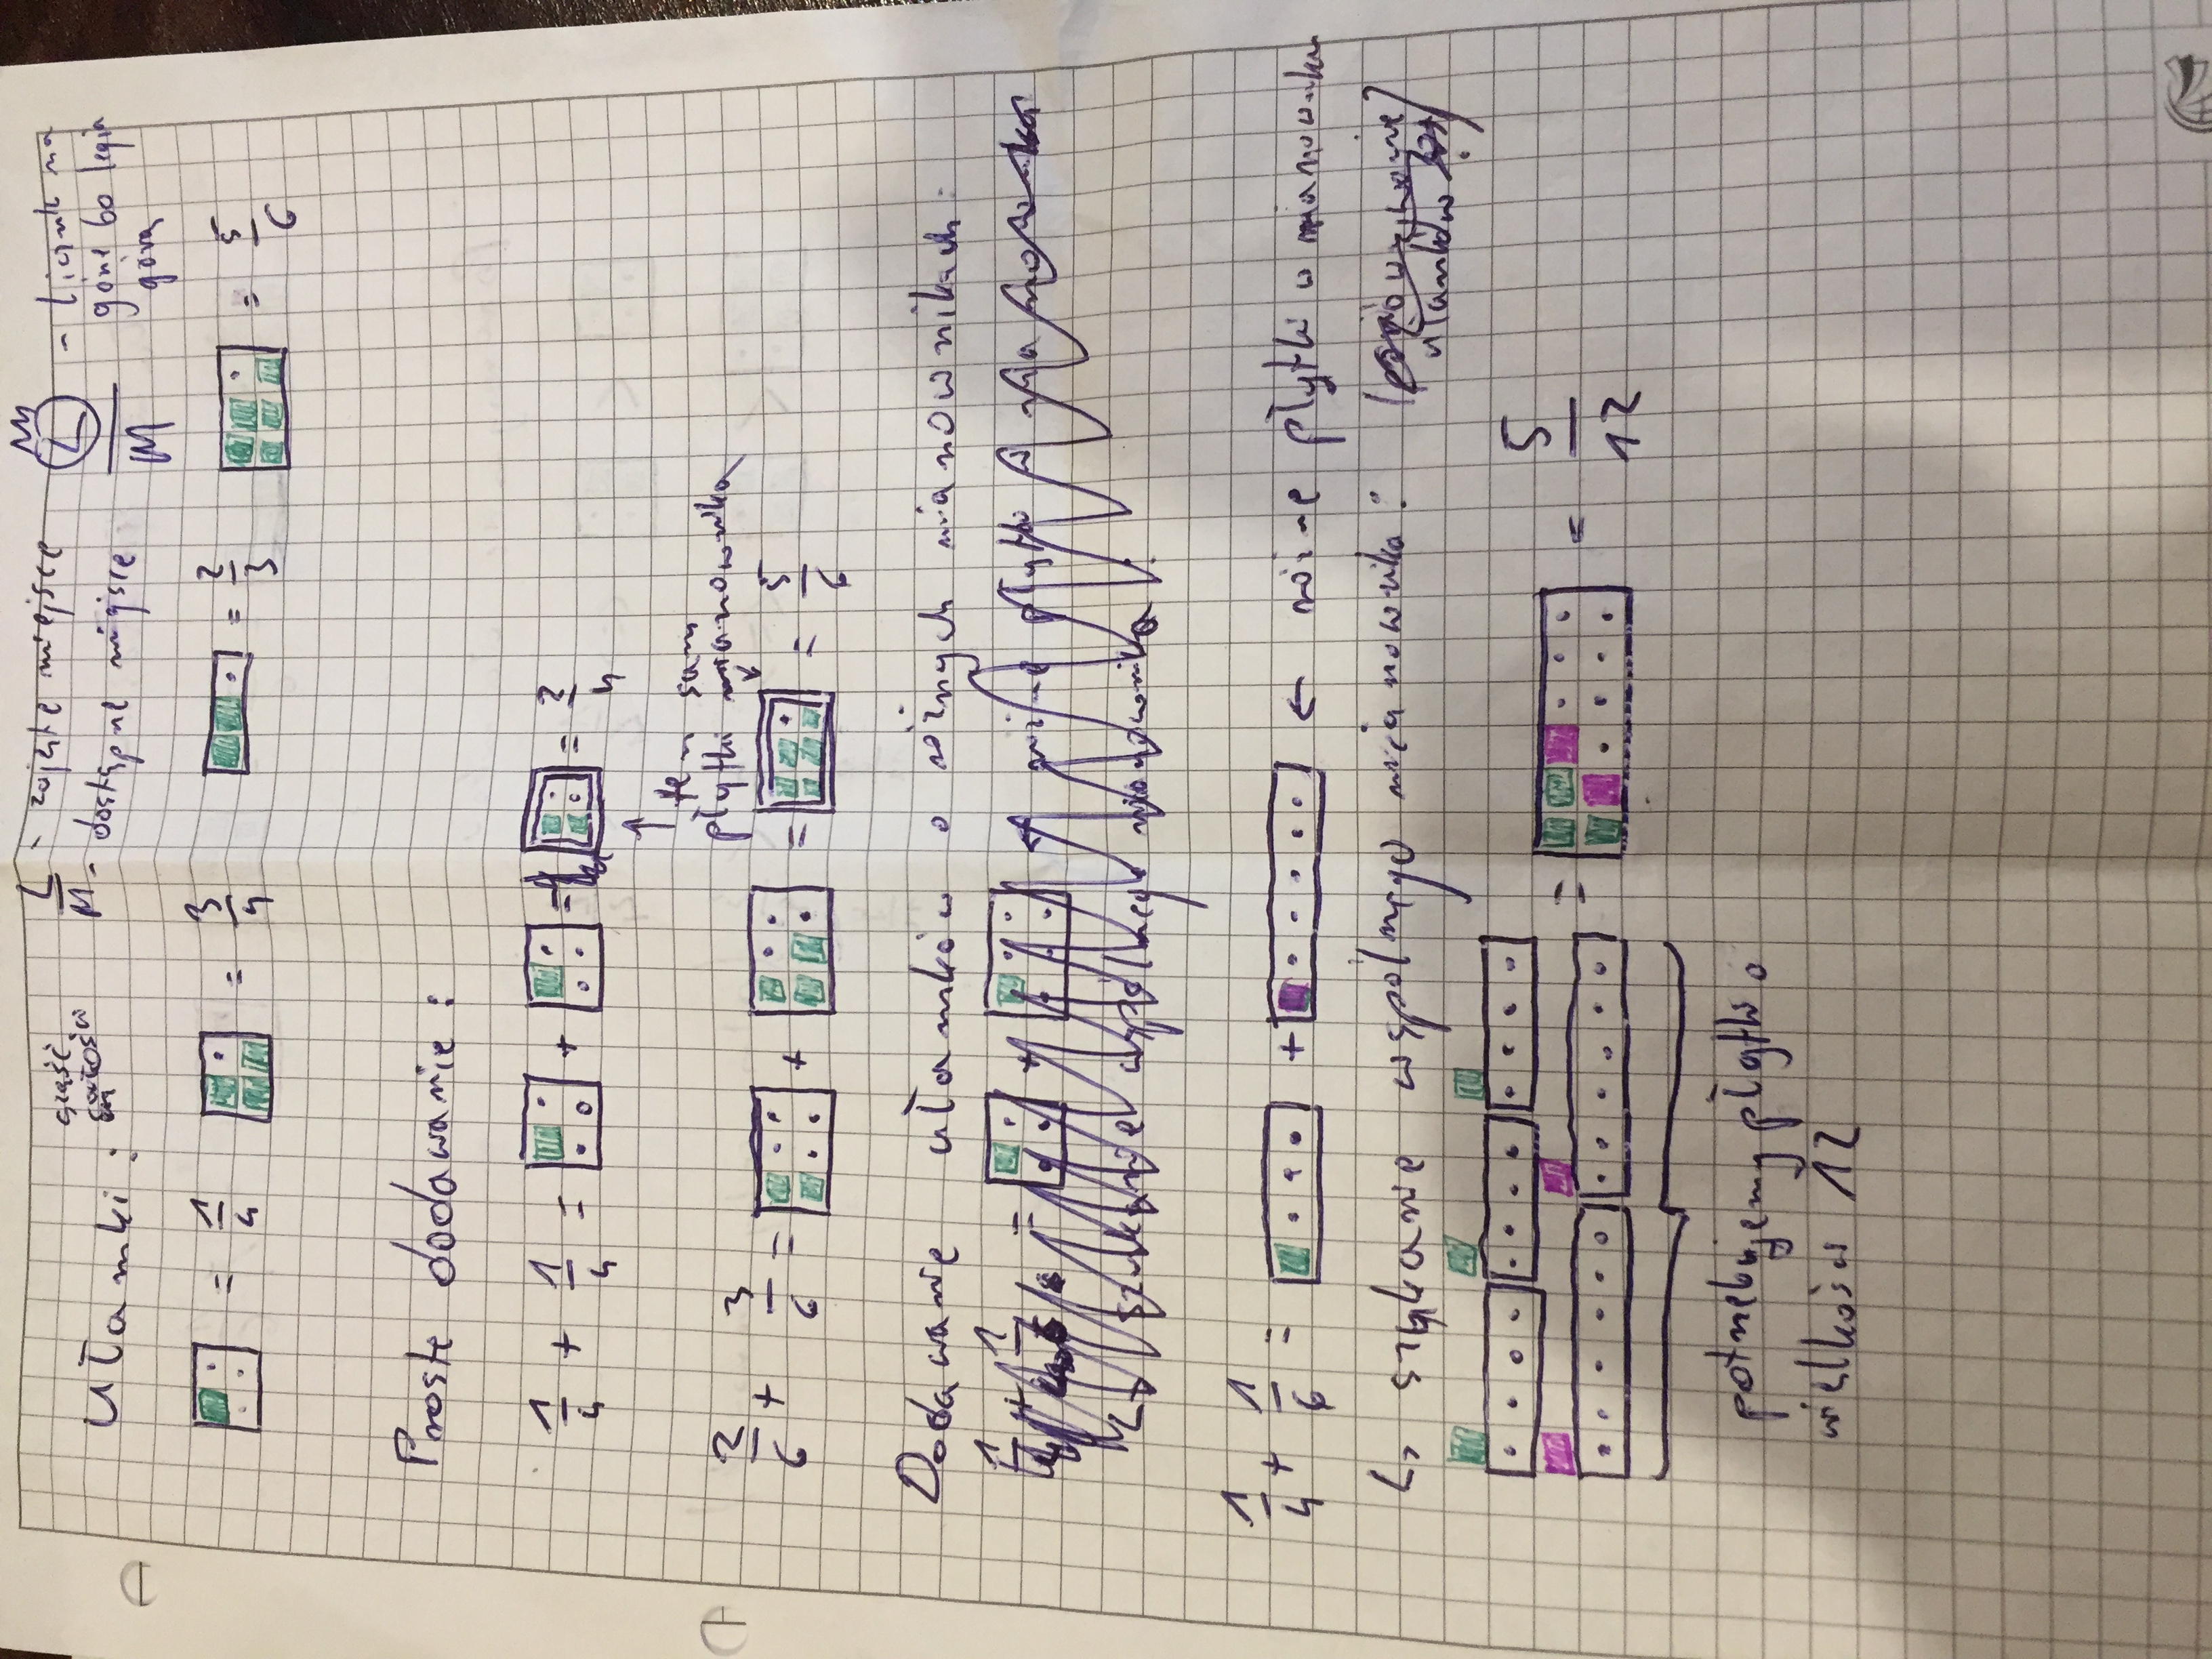 Ułamki: część całości
L/M - zajęte miejsce
- dostępne miejsce
L/M - licznik na
górze bo legia
górą
= 1/4 = 3/4 = 2/3 = 5/6
Proste dodawanie:
1/4 + 1/4 = + = = 2/4
↑ ten sam
płytki mianownika
2/6 + 3/6 = + = = 5/6
Dodawanie ułamków o różnych mianownikach:
= + ← różne płytki w mianowniku
↳ szukanie wspólnego mianownika:
1/4 + 1/6 = + ← różne płytki w mianowniku
↳ szukanie wspólnego mianownika:
ułamków
= = 5/12
potrzebujemy płytki o
wielkości 12